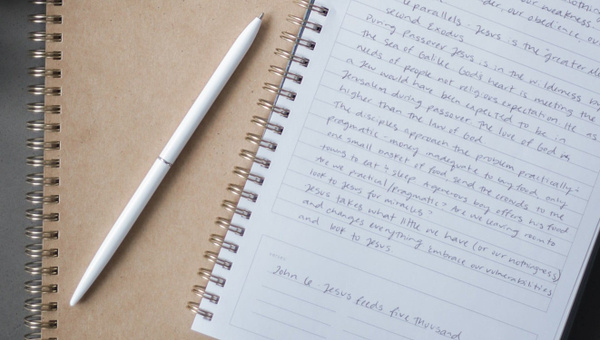 our weakness
under, our obedience, our
parallels - Jesus is the "greater
second Exodus
During Passover Jesus is in the wilderness by
the sea of Galilee. Gods heart is meeting the
needs of people not religious expectation
a Jew would have been expected to be in
Jerusalem during passover. The love of God is
higher than the law of God
The disciples approach the problem practically +
pragmatic - money inadequate to buy food, only
one small basket of food send the crowds to the
towns to eat + sleep. A generous boy offers his food
Are we practical/pragmatic? Are we leaving room to
look to Jesus for miracles?
Jesus takes what little we have (or our nothingness)
and changes everything. Embrace our vulnerabilities
and look to Jesus.
John 6 Jesus feeds five thousand